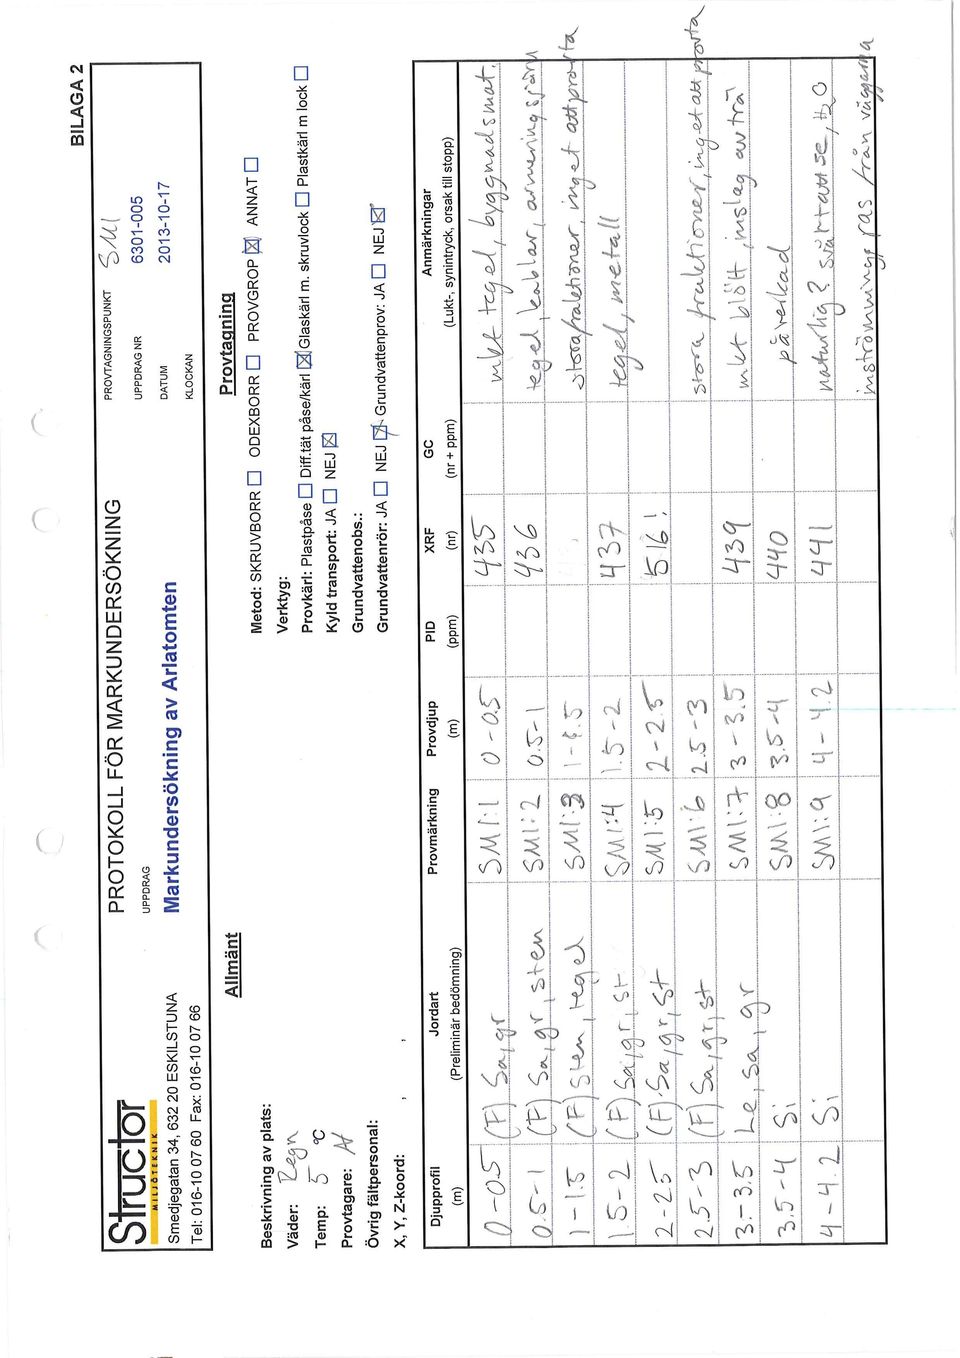 BILAGA 2
Structor
MILJÖTEKNIK
Smedjegatan 34, 632 20 ESKILSTUNA
Tel: 016-10 07 60 Fax: 016-10 07 66
PROTOKOLL FÖR MARKUNDERSÖKNING
UPPDRAG
Markundersökning av Arlatomten
PROVTAGNINGSPUNKT SM1
UPPDRAG NR 6301-005
DATUM 2013-10-17
KLOCKAN
Allmänt
Beskrivning av plats:
Väder: Regn
Temp: 5 °C
Provtagare:
Övrig fältpersonal:
X, Y, Z-koord: , ,
Provtagning
Metod: SKRUVBORR ☐ ODEXBORR ☐ PROVGROP ☒ ANNAT ☐
Verktyg:
Provkärl: Plastpåse ☐ Diff.tät påse/kärl ☒ Glaskärl m. skruvlock ☐ Plastkärl m lock ☐
Kyld transport: JA ☐ NEJ ☒
Grundvattenobs.:
Grundvattenrör: JA ☐ NEJ ☒ Grundvattenprov: JA ☐ NEJ ☒
Djupprofil Jordart Provmärkning Provdjup PID XRF GC Anmärkningar
(m) (Preliminär bedömning) (m) (ppm) (nr) (nr + ppm) (Lukt-, synintryck, orsak till stopp)
0-0.5 (F) Sa, gr SM1:1 0-0.5 435 mkt tegel, byggnadsmat.
0.5-1 (F) Sa, gr, sten SM1:2 0.5-1 436 tegel, kablar, armeringsjärn
1-1.5 (F) sten, tegel SM1:3 1-1.5 stora fraktioner, inget att provta
1.5-2 (F) Sa, gr, st SM1:4 1.5-2 437 tegel, metall
2-2.5 (F) Sa, gr, st SM1:5 2-2.5 516!
2.5-3 (F) Sa, gr, st SM1:6 2.5-3 stora fraktioner, inget att provta
3-3.5 Le, Sa, gr SM1:7 3-3.5 439 mkt blött, inslag av trä
3.5-4 Si SM1:8 3.5-4 440 påverkad
4-4.2 Si SM1:9 4-4.2 441 naturlig? svårt att se, H2O
från väggarna